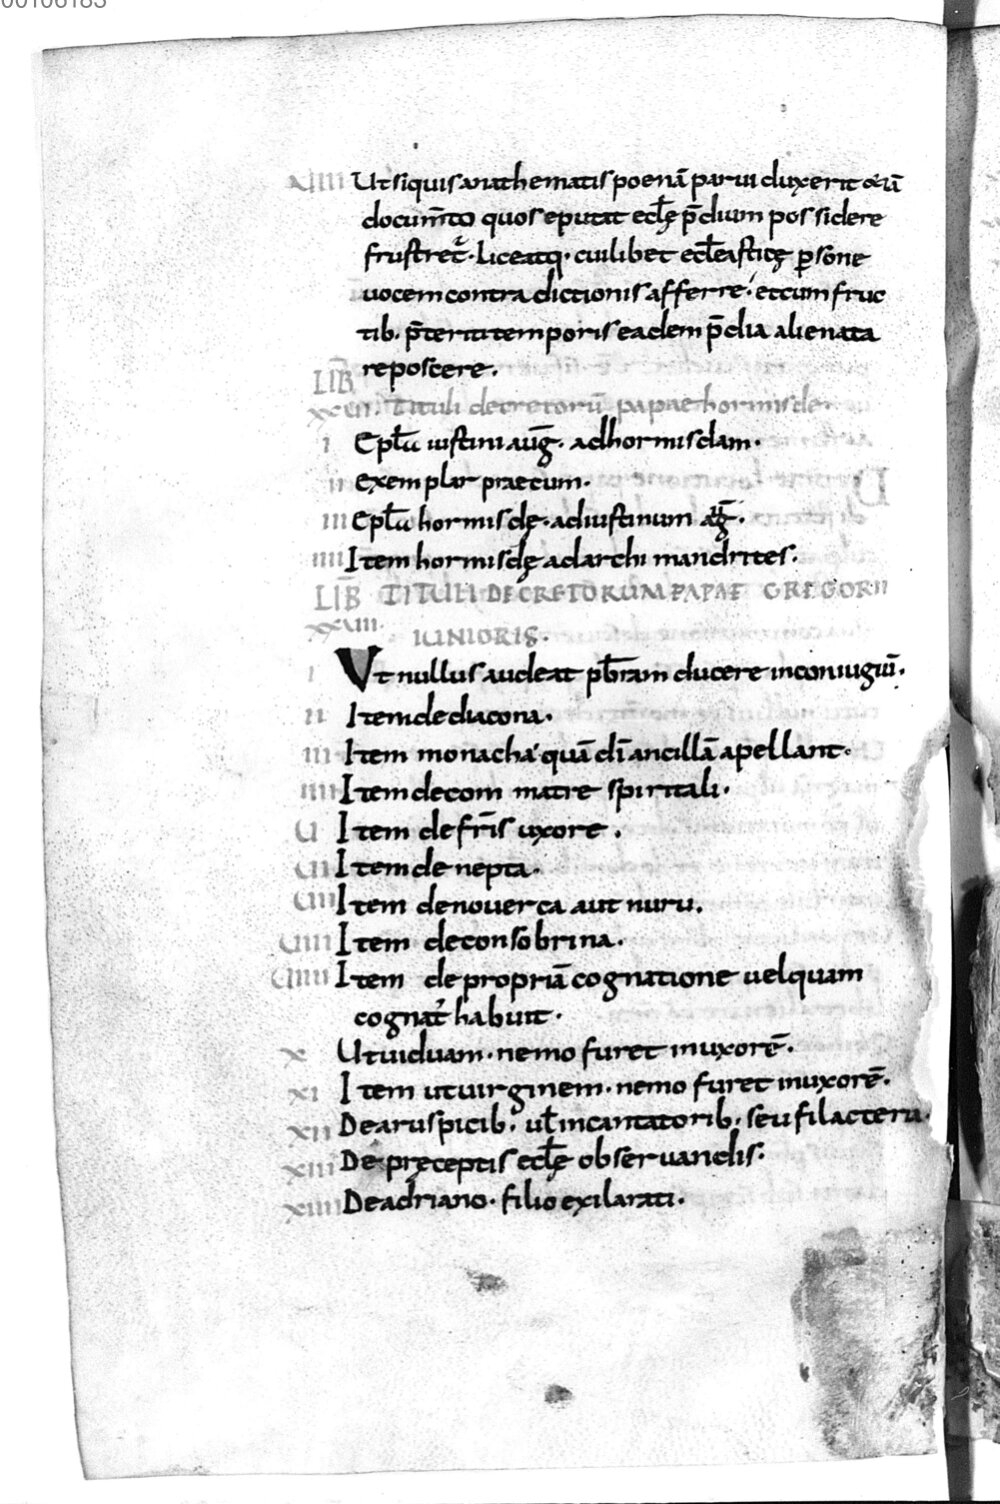 00106183
XIIII Ut siquis anathematis poenā parui duxerit & iā
docum̄to quos eputat eclę p̄dium possidere
frustret̄. Liceatq; cuilibet eclesiasticę psone
uocem contra dictionis afferre. et cum fruc
tib. p̄teriti temporis eadem p̄dia alienata
reposcere.
LIB̄
XXVII. Tituli decretorū papae hormisdę
I Eplā iustini aūg. ad hormisdam.
II Exemplar praecum.
III Eplā hormisdę. ad iustinum aūg.
IIII Item hormisdę ad archi mandrites.
LIB̄ TITULI DECRETORUM PAPAE GREGORII
XXVIII. IUNIORIS.
I Ut nullus audeat pb̄ram ducere in coniugiū.
II Item de diacona.
III Item monacha quā dī ancillā apellant.
IIII Item de com matre spiritali.
U Item de fr̄is uxore.
UI Item de nepta.
UII Item de nouerca aut nuru.
UIII Item de consobrina.
UIIII Item de propriā cognatione uel quam
cognat' habuit.
X Ut uiduam. nemo furet in uxorē.
XI Item ut uirginem. nemo furet in uxorē.
XII De aruspicib. ut̄ incantatorib. seu filacteria.
XIII De pręceptis eclę obseruandis.
XIIII De adriano. filio exilarati.